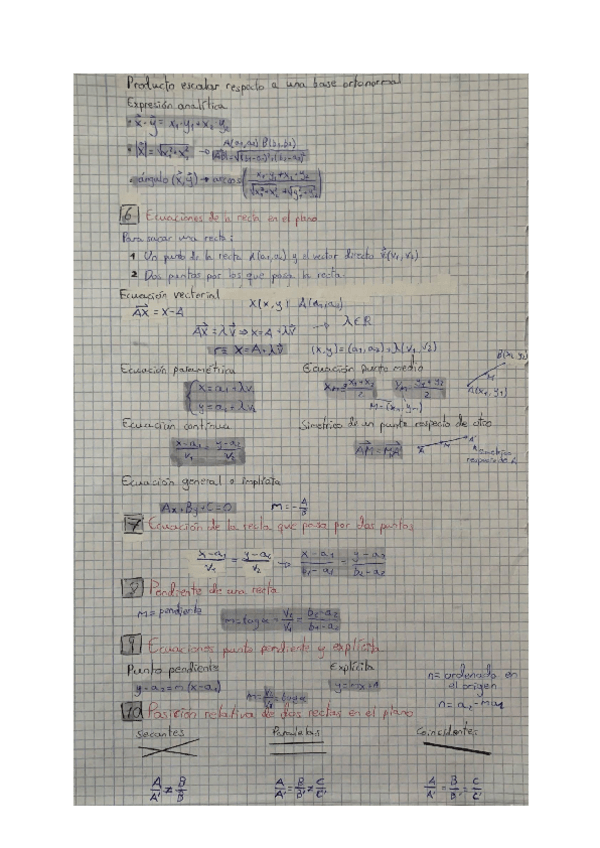 Producto escalar respecto a una base ortonormal
Expresión analítica
• x⃗·y⃗ = x₁·y₁+x₂·y₂
• |x⃗| = √x₁²+x₂² → A(a₁,a₂) B(b₁,b₂)
|AB| = √(b₁-a₁)²+(b₂-a₂)²
• ángulo (x⃗,y⃗) → arccos
6 Ecuaciones de la recta en el plano
Para sacar una recta:
1 Un punto de la recta A(a₁,a₂) y el vector director v⃗(v₁,v₂)
2 Dos puntos por los que pasa la recta.
Ecuación vectorial X(x,y) A(a₁,a₂)
AX⃗ = X-A
AX⃗ = λv⃗ ⇒ X = A+λv⃗ → λ∈ℝ
r ≡ X = A+λv⃗ (x,y) = (a₁,a₂)+λ(v₁,v₂)
Ecuación paramétrica Ecuación punto medio
x = a₁+λv₁
y = a₂+λv₂
Xm = x₁+x₂/2 Ym = y₁+y₂/2
B(x₂,y₂)
M
A(x₁,y₁)
M=(xm,ym)
Ecuación continua Simétrico de un punto respecto de otro
x-a₁/v₁ = y-a₂/v₂ AM⃗ = MA'⃗
A M A'
simétrico
respecto de
Ecuación general o implícita
Ax+By+C=0 m=-A/B
7 Ecuación de la recta que pasa por dos puntos
x-a₁/v₁ = y-a₂/v₂ → x-a₁/b₁-a₁ = y-a₂/b₂-a₂
8 Pendiente de una recta
m= pendiente
m = tg α = v₂/v₁ = b₂-a₂/b₁-a₁
9 Ecuaciones punto pendiente y explícita
Punto pendiente Explícita
y-a₂=m(x-a₁) m=v₂/v₁=tg α y=mx+n
n= ordenada en
el origen
n= a₂-ma₁
10 Posición relativa de dos rectas en el plano
Secantes Paralelas Coincidentes
A/A' ≠ B/B' A/A' = B/B' ≠ C/C' A/A' = B/B' = C/C'